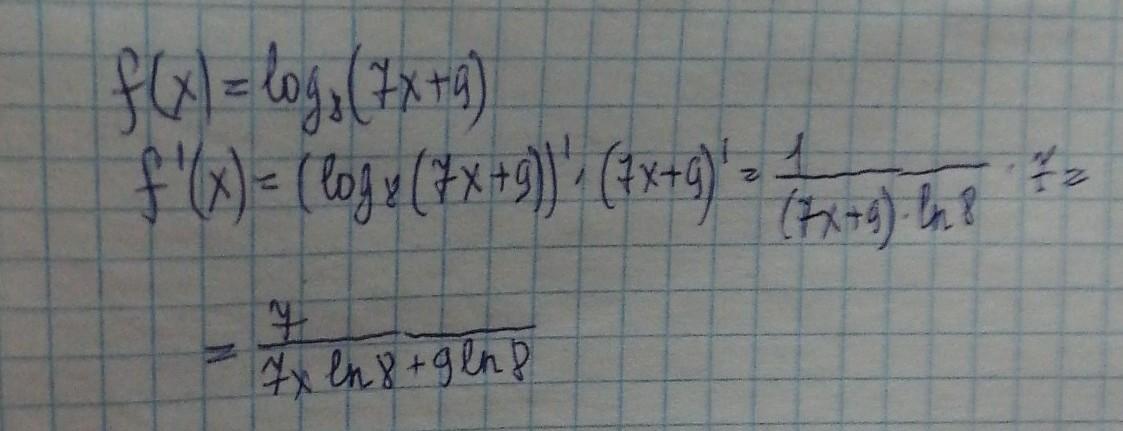 f(x) = log₈(7x+9)
f'(x) = (log₈(7x+9))' · (7x+9)' = 1/((7x+9)·ln 8) · 7/1 =
= 7/(7x ln 8 + 9 ln 8)